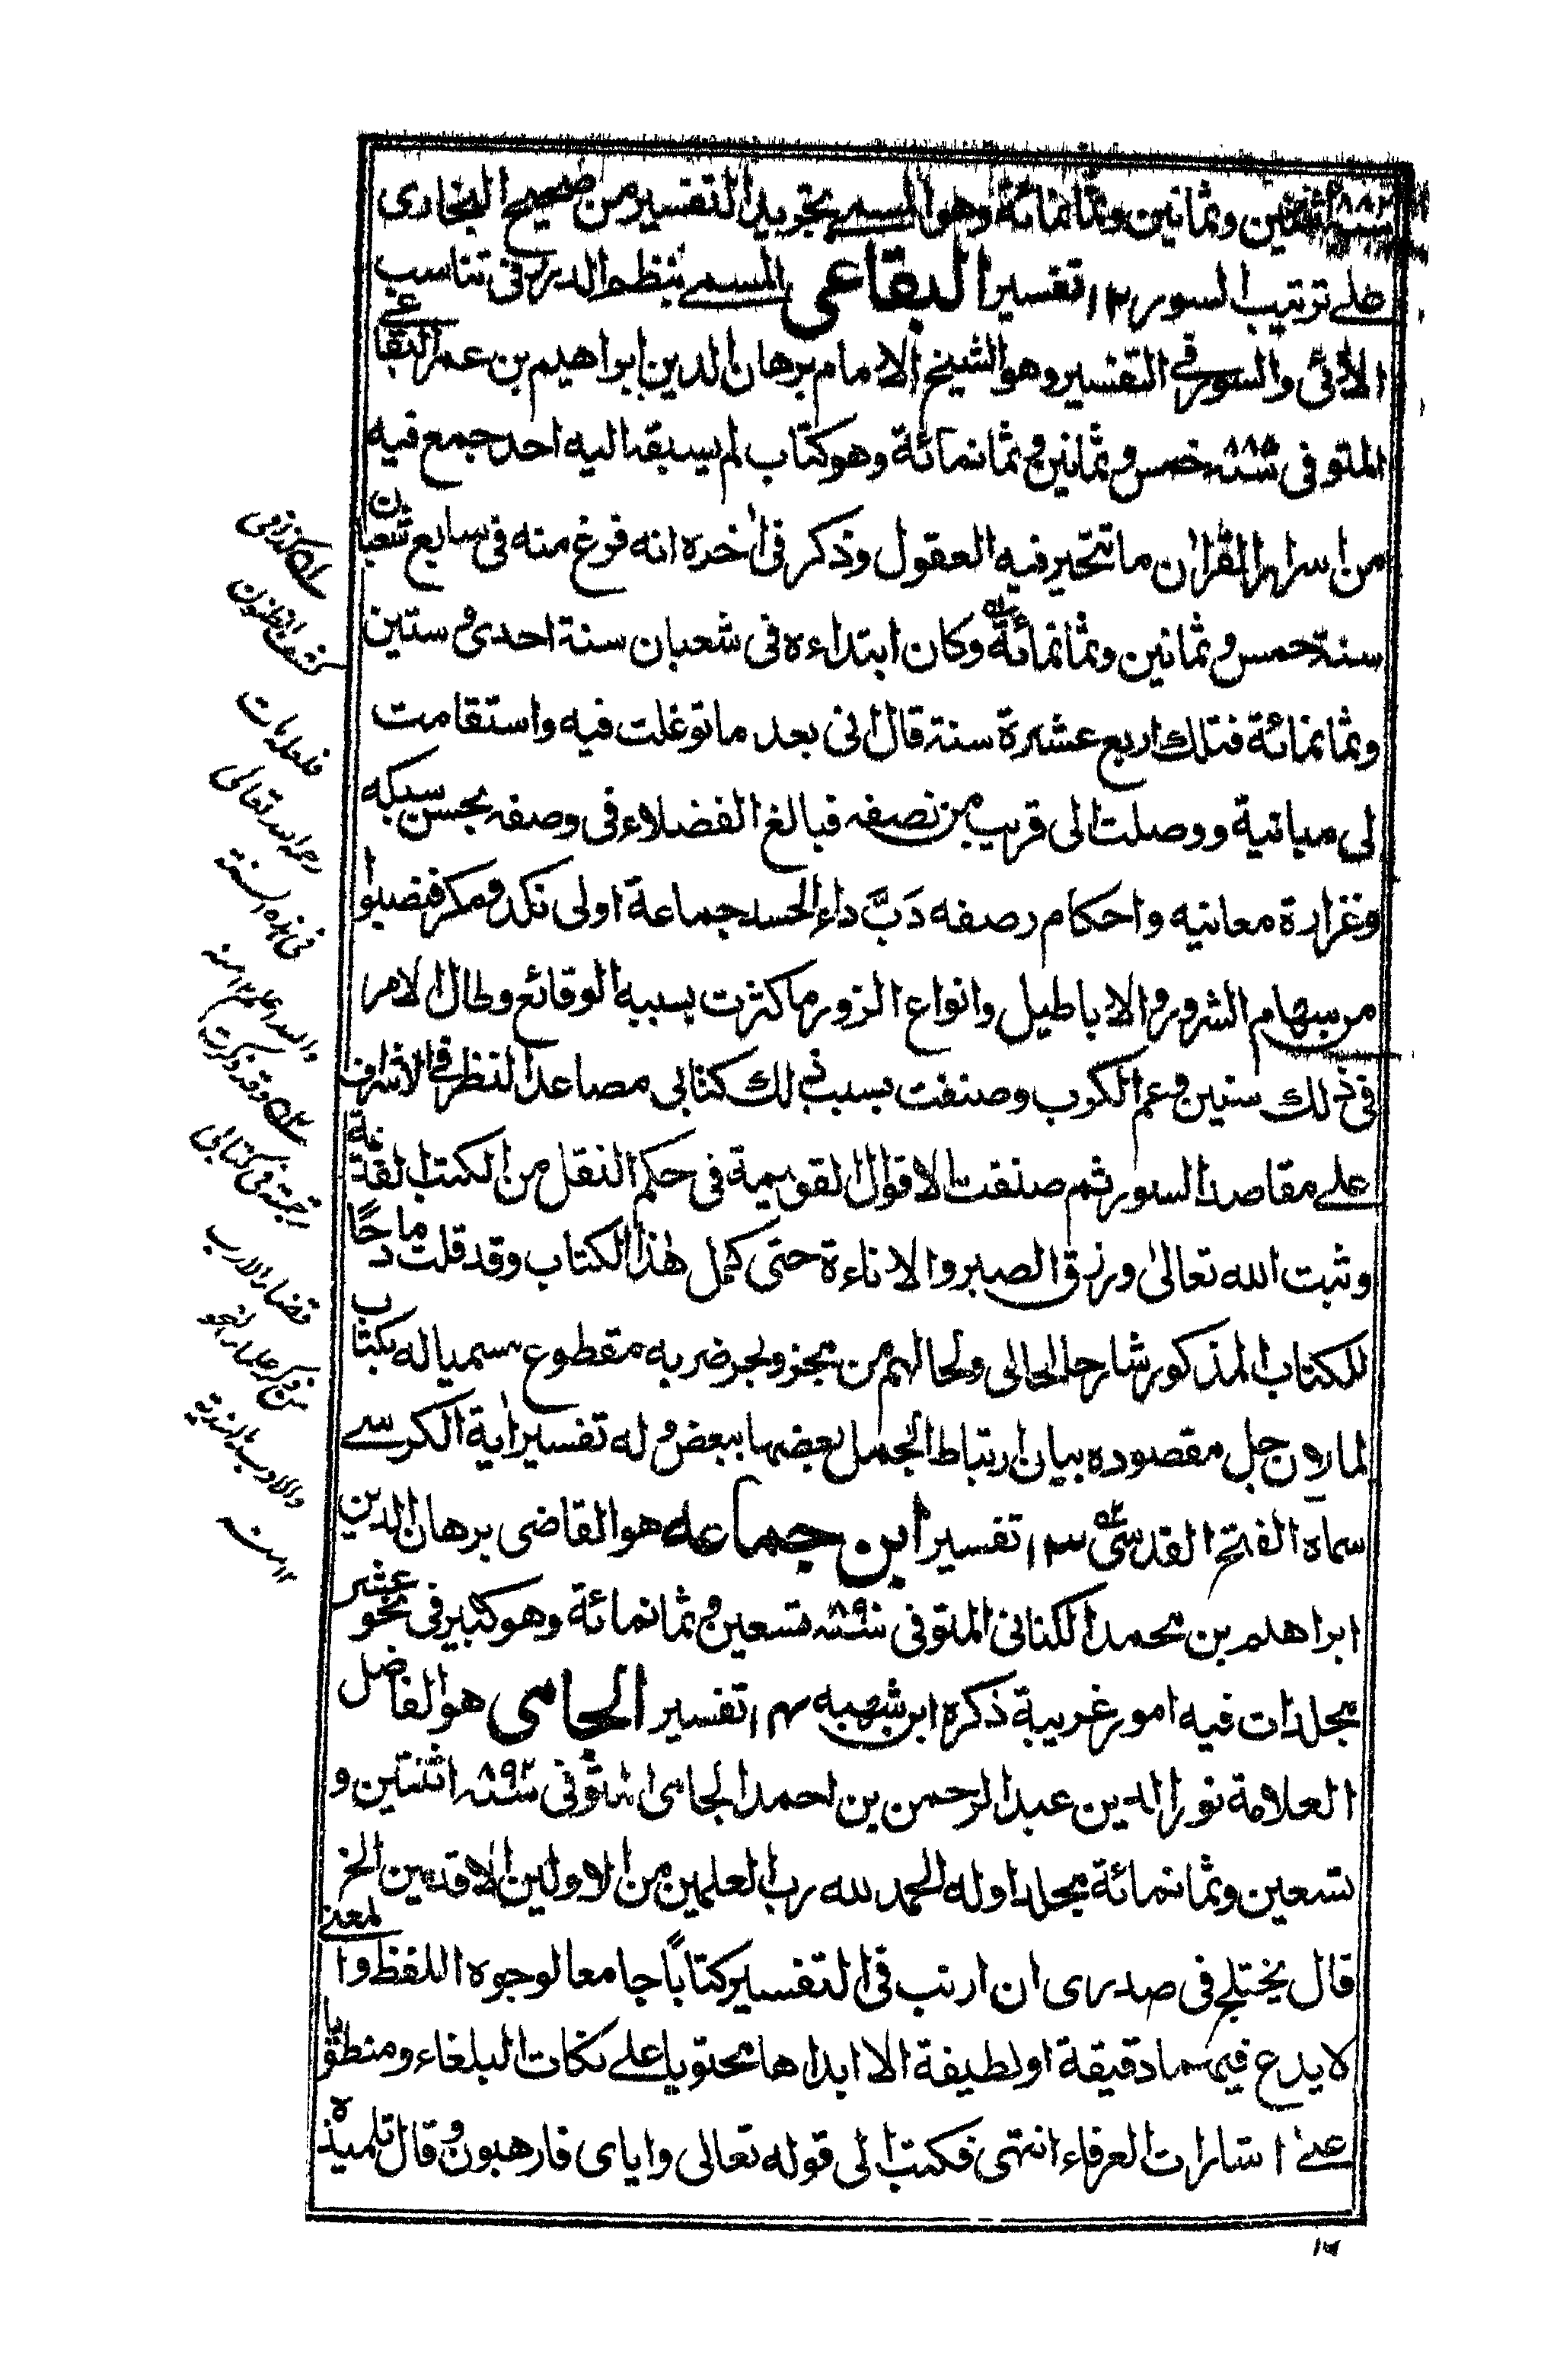 سنة ٨٨٢ اثنتين وثمانين وثمانمائة وهو المسمى بتجريد التفسير من صحيح البخارى
على ترتيب السور ١٢ تفسير البقاعى المسمى بنظم الدرر فى تناسب
الأئى والسور فى التفسير وهو الشيخ الامام برهان الدين ابراهيم بن عمر البقاعى
المتوفى سنة ٨٨٥ خمس و ثمانين و ثمانمائة وهو كتاب لم يسبقه اليه احد جمع فيه
من اسرار القران ما تتحير فيه العقول وذكر فى اخره انه فرغ منه فى سابع شعبان
سنة خمس و ثمانين وثمانمائة وكان ابتداءه فى شعبان سنة احدى و ستين
وثمانمائة فتلك اربع عشرة سنة قال انى بعد ما توغلت فيه واستقامت
لى مبانية ووصلت الى قريب من نصفه فبالغ الفضلاء فى وصفه بحسن سبكه
وغزارة معانيه واحكام رصفه دَبَّ داء الحسد جماعة اولى نكد ومكر فنصبوا
من سهام الشرور والاباطيل وانواع الزور ما كثرت بسببه الوقائع وطال الامر
فى ذلك سنين وعم الكرب وصنفت بسبب ذلك كتابى مصاعد النظر فى الاشراف
على مقاصد السور ثم صنفت الاقوال القويمة فى حكم النقل من الكتب القديمة
وثبت الله تعالى ورزق الصبر والاناءة حتى كمل هذا الكتاب وقد قلت مادحًا
للكتاب المذكور شارحا لحالى ولحالهم من مجزو لجر ضربه مقطوع مسميا له بكتاب
لما رون جل مقصوده بيان ارتباط الجمل بعضها ببعض وله تفسير اية الكرسے
سماه الفتح القدسى ١٣ تفسير ابن جماعه هو القاضى برهان الدين
ابراهيم بن محمد الكنانى المتوفى سنة ٨٩٠ تسعين و ثمانمائة وهو كبير فى نحو عشر
مجلدات فيه امور غريبة ذكره ابن شهبه ١٤ تفسير الجامى هو الفاضل
العلامة نور الدين عبد الرحمن بن احمد الجامى المتوفى سنة ٨٩٢ اثنتين و
تسعين وثمانمائة مجلد اوله الحمد لله رب العلمين من الاولين الاقدمين الخ
قال يختلج فى صدرى ان ارتب فى التفسير كتابًا جامعا لوجوه اللفظ والمعنى
لا يدع فيهما دقيقة او لطيفة الا ابداها محتويا على نكات البلغاء ومنطويا
على اشارات العرفاء انتهى فكتب الى قوله تعالى واياى فارهبون وقال تلميذه
١ه كذا فى
كشف الظنون
فلعله مات
رحمه الله تعالى
فى هذه السنة
والله اعلم ١٢ منه
٢ه وقد ذكرت
ترجمته فى كتابى
قضاء الارب
من ذكر علماء النحو
والادب
١٢ منه
١٢